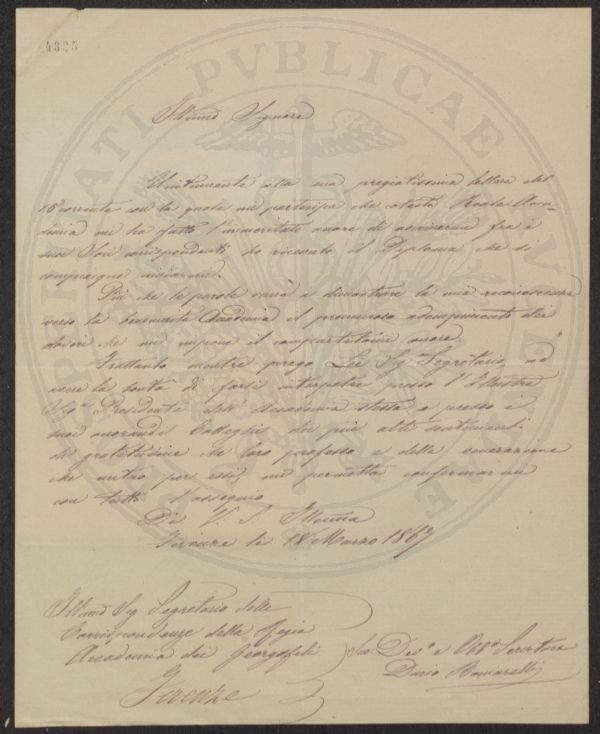 4325
Illmo Signore
Unitamente alla sua pregiatissima lettera del
15 corrente con la quale mi partecipa che cotesta Reale Acca-
demia mi ha fatto l'immeritato onore di ascrivermi fra i
suoi Soci corrispondenti ho ricevuto il Diploma che si
compiacque inviarmi.
Più che le parole varrà a dimostrare la mia riconoscenza
verso la benemerita Accademia il premuroso adempimento dei
doveri che mi impone il compartitomi onore.
Frattanto mentre prego Lei Sig. Segretario, ad
avere la bontà di farsi interpetre presso l'Illustre
Sig. Presidente dell'Accademia stessa e presso i
suoi onorandi Colleghi dei più alti sentimenti
di gratitudine che loro professo e della venerazione
che nutro per essi, mi permetta confermarmi
con tutto l'ossequio
Di V. S. Illma
Firenze li 18 Marzo 1867
Illmo Sig Segretario delle
Corrispondenze della Regia
Accademia dei Georgofili
Firenze
Suo Devo e Obbo Servitore
Dario
PVBLICAE